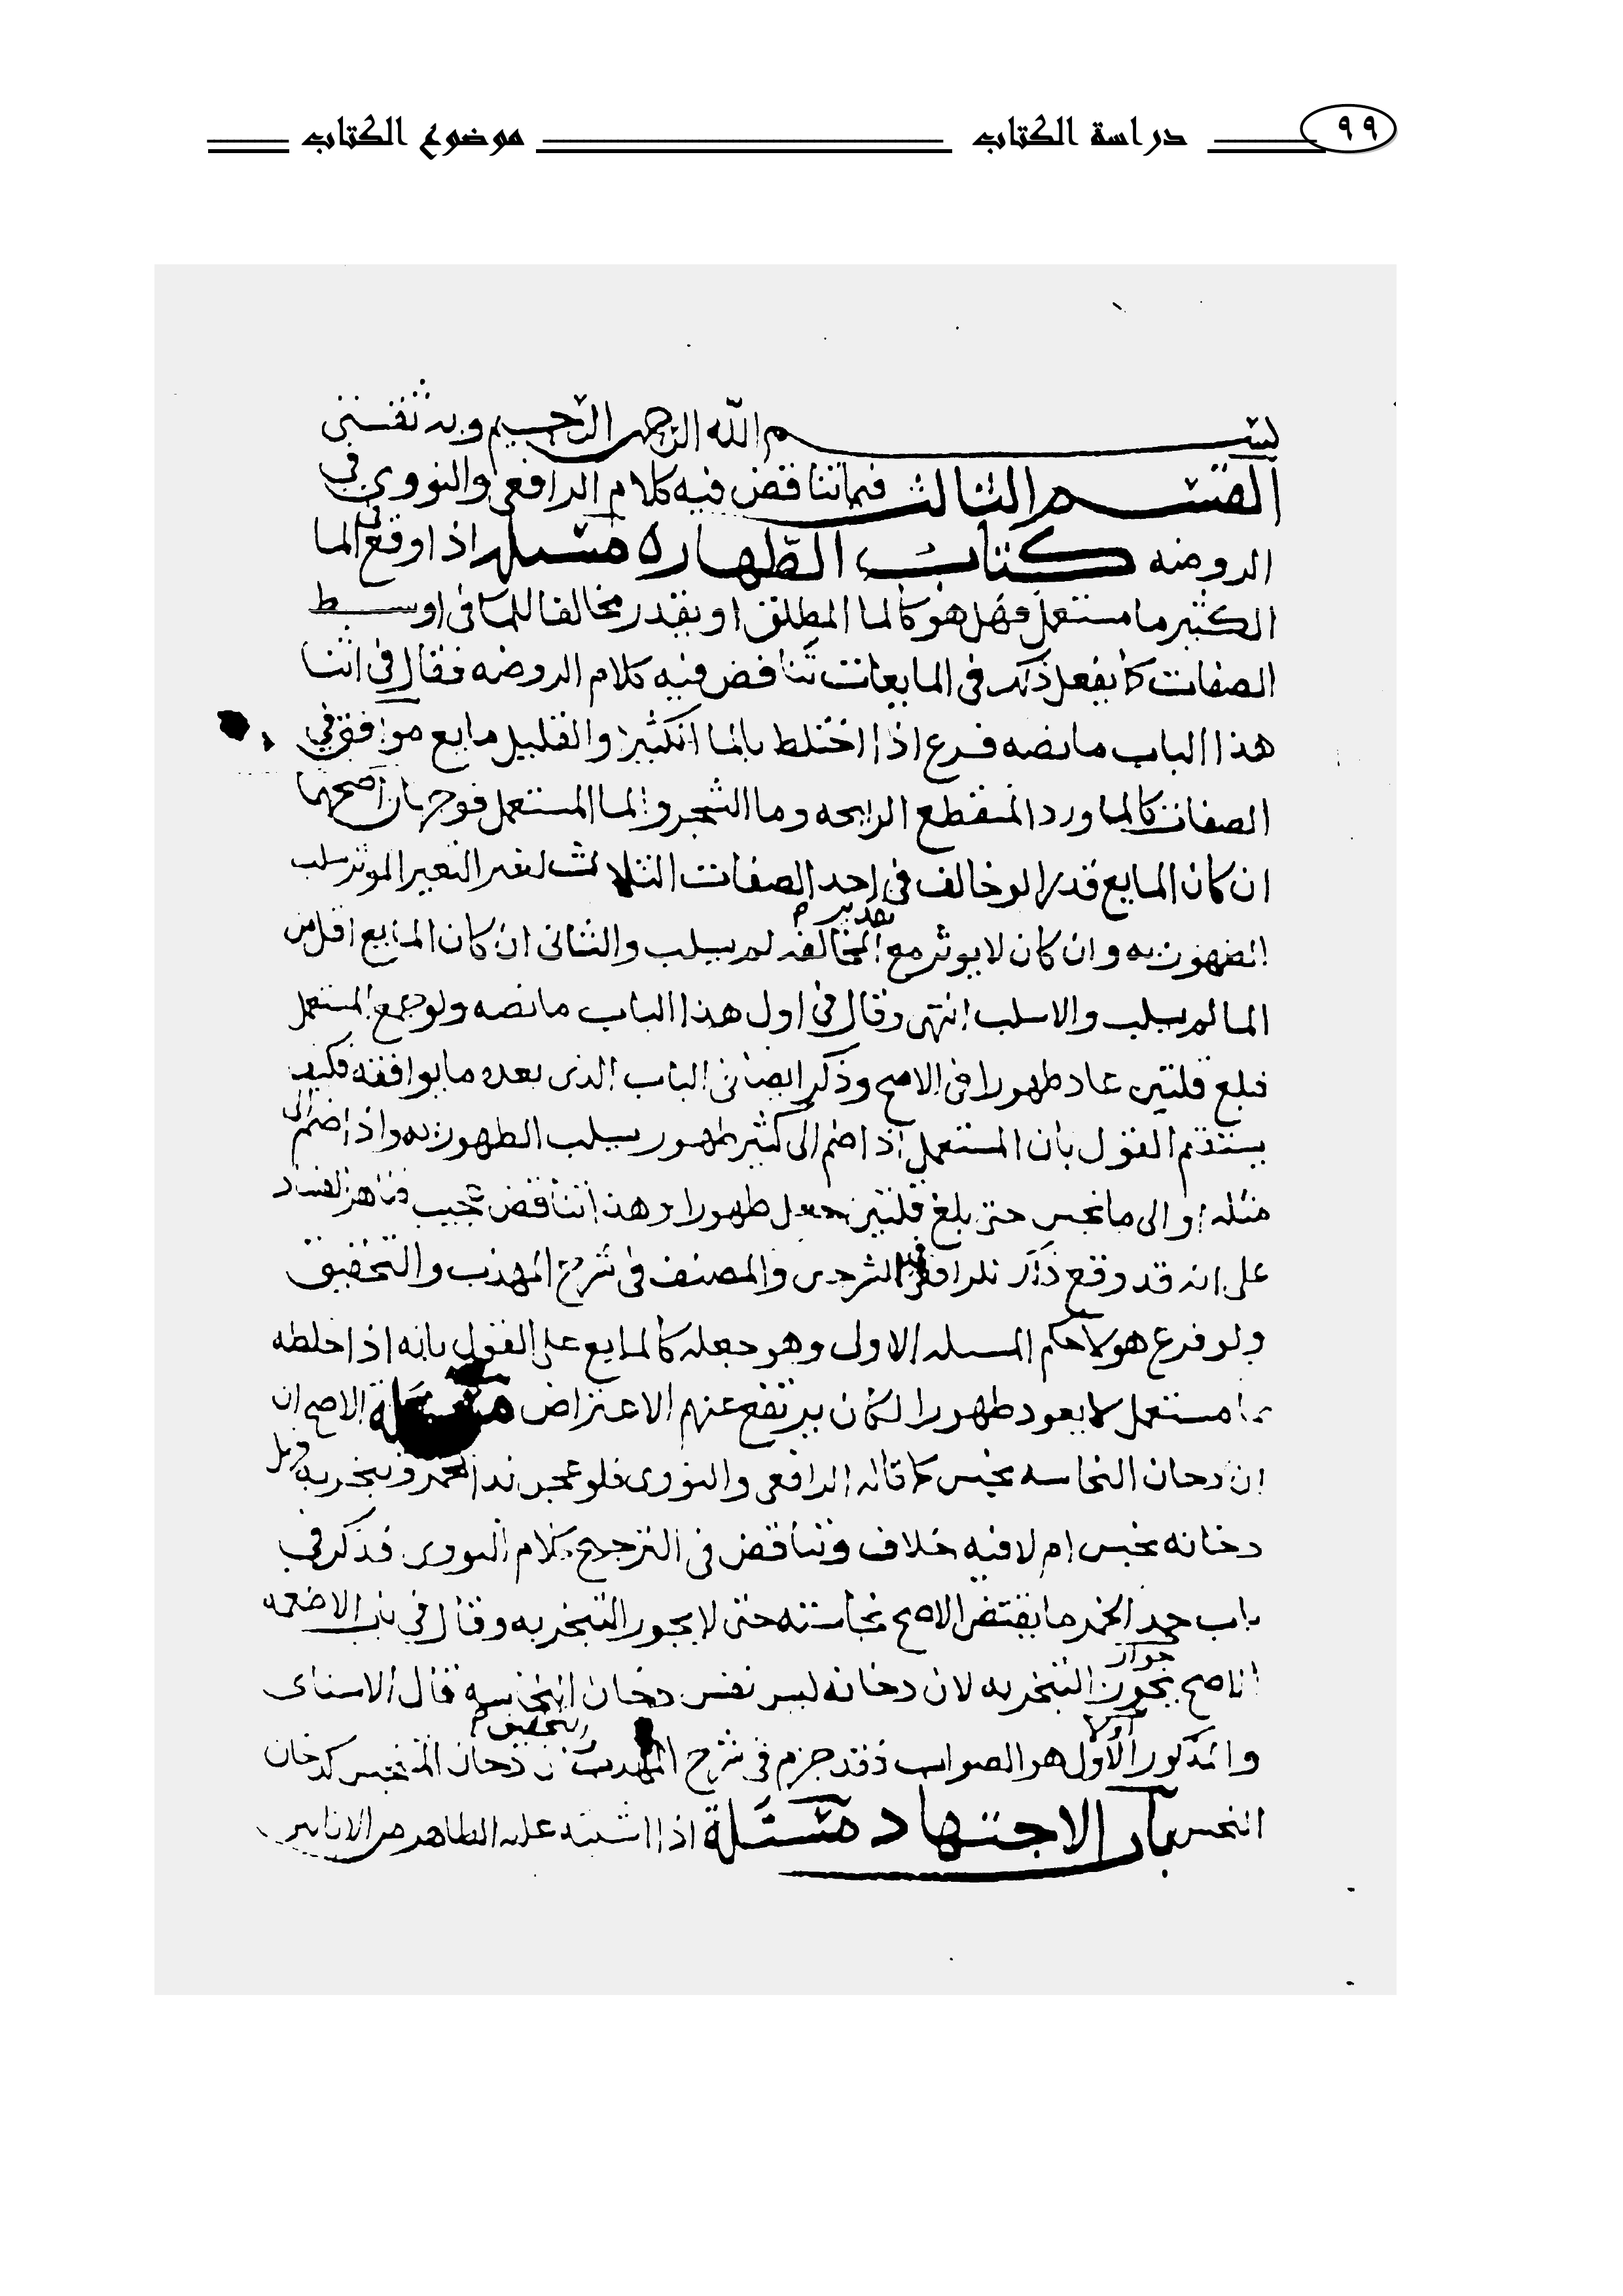 ٩٩ دراسة الكتاب موضوع الكتاب
بسم الله الرحمن الرحيم وبه ثقتى
القسم الثالث فيما تناقض فيه كلام الرافعى والنووى فى
الروضه كتاب الطهاره مسله اذا وقع فى الما
الكثير ما مستعمل فهل هو كالما المطلق او يقدر مخالفا للما فى اوسط
الصفات كما يفعل ذلك فى المايعات تناقض فيه كلام الروضه فقال فى اثنا
هذا الباب ما نصه فرع اذا اختلط بالما الكثير او القليل مايع موافق فى
الصفات كالما ورد المنقطع الرايحه وما الشجر والما المستعمل فوجهان اصحهما
ان كان المايع قدرا لو خالف فى احد الصفات الثلاث لغير التغير الموثر سلب
الطهوريه وان كان لا يوثر مع تقدير المخالفه لم يسلب والثانى ان كان المايع اقل من
الما لم يسلب والا سلب انتهى وقال فى اول هذا الباب ما نصه ولو جمع المستعمل
فبلغ قلتين عاد طهورا فى الاصح وذكر ايضا فى الباب الذى بعده ما يوافقه فكيف
يستقيم القول بان المستعمل اذا ضم الى كثير طهور يسلب الطهوريه واذا ضم الى
مثله او الى ما نجس حتى بلغ قلتين جعل طهورا وهذا تناقض عجيب
على انه قد وقع ذلك للرافعى فى الشرحين والمصنف فى شرح المهذب والتحقيق
ولو فرع هولا حكم المسله الاولى وهو جعله كالمايع على القول بانه اذا خلطه
بما مستعمل لا يعود طهورا لكان يرتفع عنهم الاعتراض مسله الاصح ان
ان دخان النجاسه نجس كما قاله الرافعى والنووى فلو عجن ندا بخمر وتبخر به فهل
دخانه نجس ام لا فيه خلاف وتناقض فى الترجيح كلام النووى فذكر فى
باب حد الخمر ما يقتضى الاصح نجاسته حتى لا يجوز التبخر به وقال فى باب الاطعمه
الاصح جواز التبخر به لان دخانه ليس نفس دخان النجاسه قال الاسناى
والمذكور اولا هو الصواب فقد جزم فى شرح المهذب والتحقيق دخان المتنجس كدخان
النجس باب الاجتهاد مسئلة اذا اشتبه عليه الطاهر من الانايين